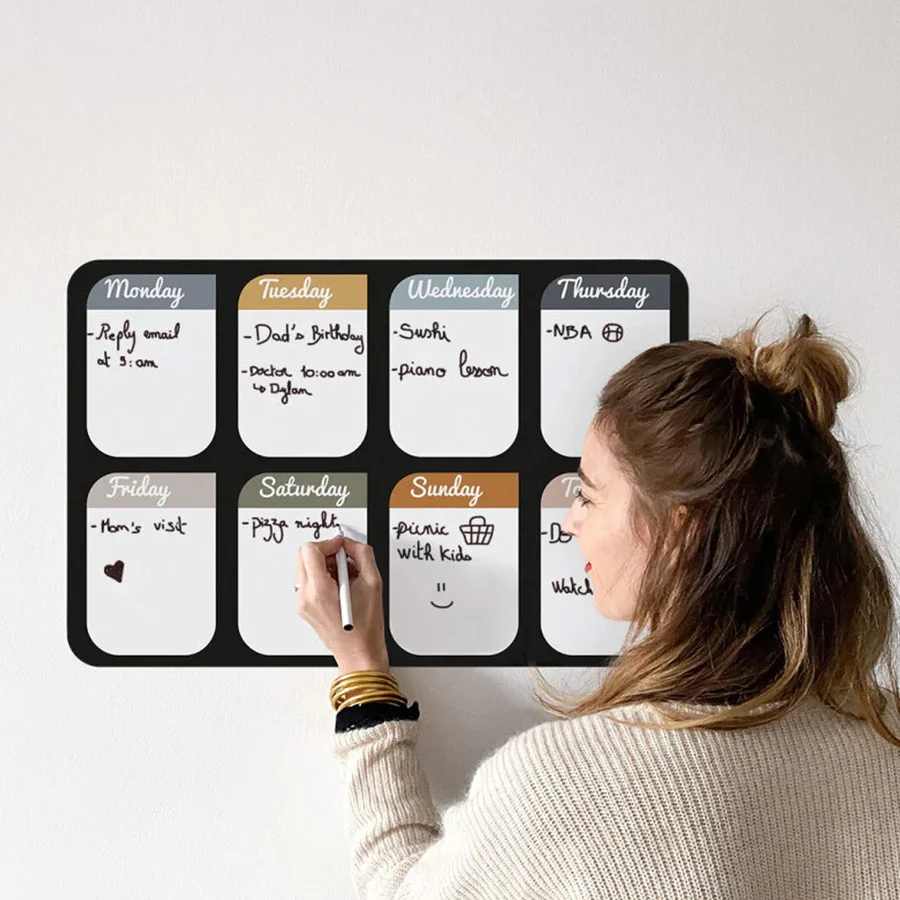 Monday
-Reply email
at 9:am
Tuesday
-Dad's Birthday
-Doctor 10:00 am
↳ Dylan
Wednesday
-Sushi
-piano lesson
Thursday
-NBA
Friday
-Mom's visit
Saturday
-pizza night
Sunday
-picnic
with kids
Watch